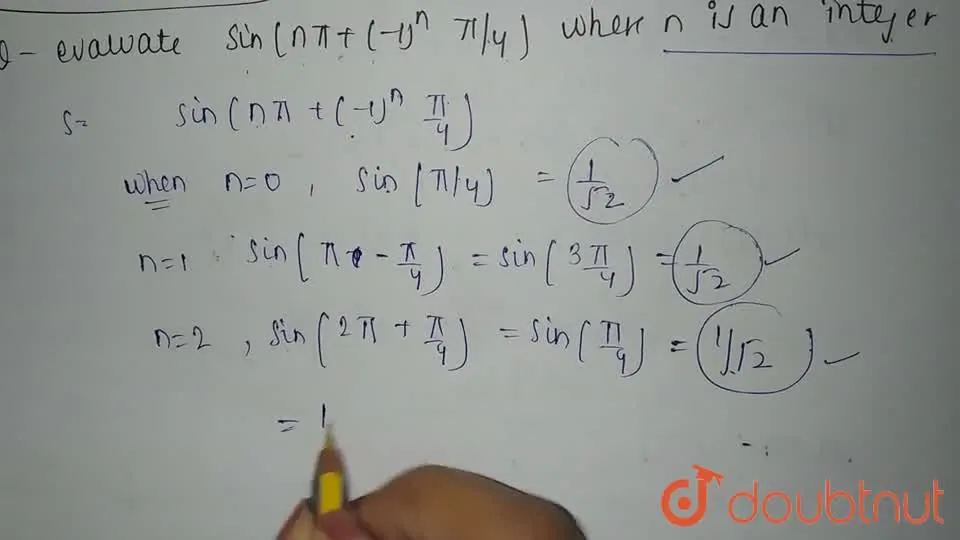 Q- evaluate sin(nπ+(-1)ⁿ π/4) where n is an integer
S= sin(nπ+(-1)ⁿ π/4)
when n=0, sin(π/4) = 1/√2 ✓
n=1 sin(π - π/4) = sin(3π/4) = 1/√2 ✓
n=2, sin(2π + π/4) = sin(π/4) = 1/√2 ✓
= 1
doubtnut